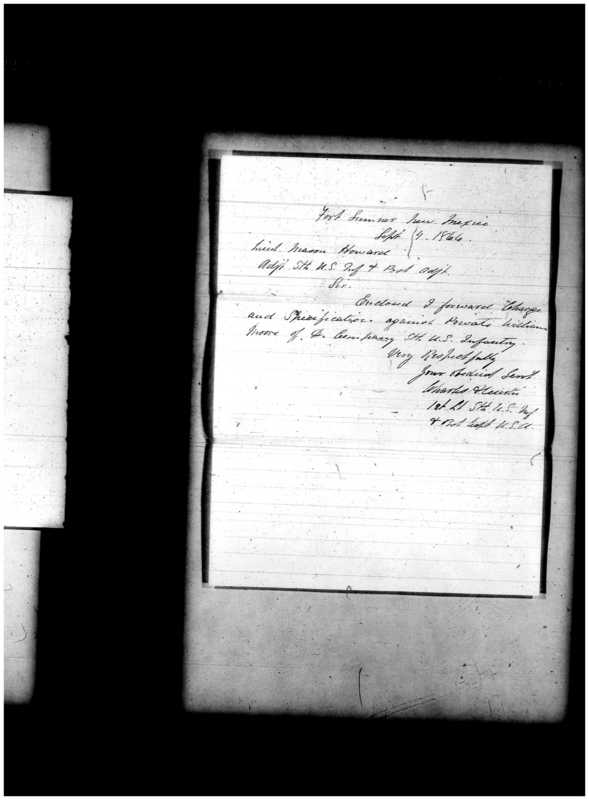 Fort Sumner New Mexico
Sept 7. 1866.
Lieut. Mason Howard
Adjt. 5th U.S. Inf & Post Adjt.
Sir.
Enclosed I forward Charge
and Specification against Private William
Moore of D. Company 5th U.S. Infantry.
Very Respectfully
Your Obedient Servt
Charles
1st Lt 5th U.S. Inf
& Bvt Capt U.S.A.